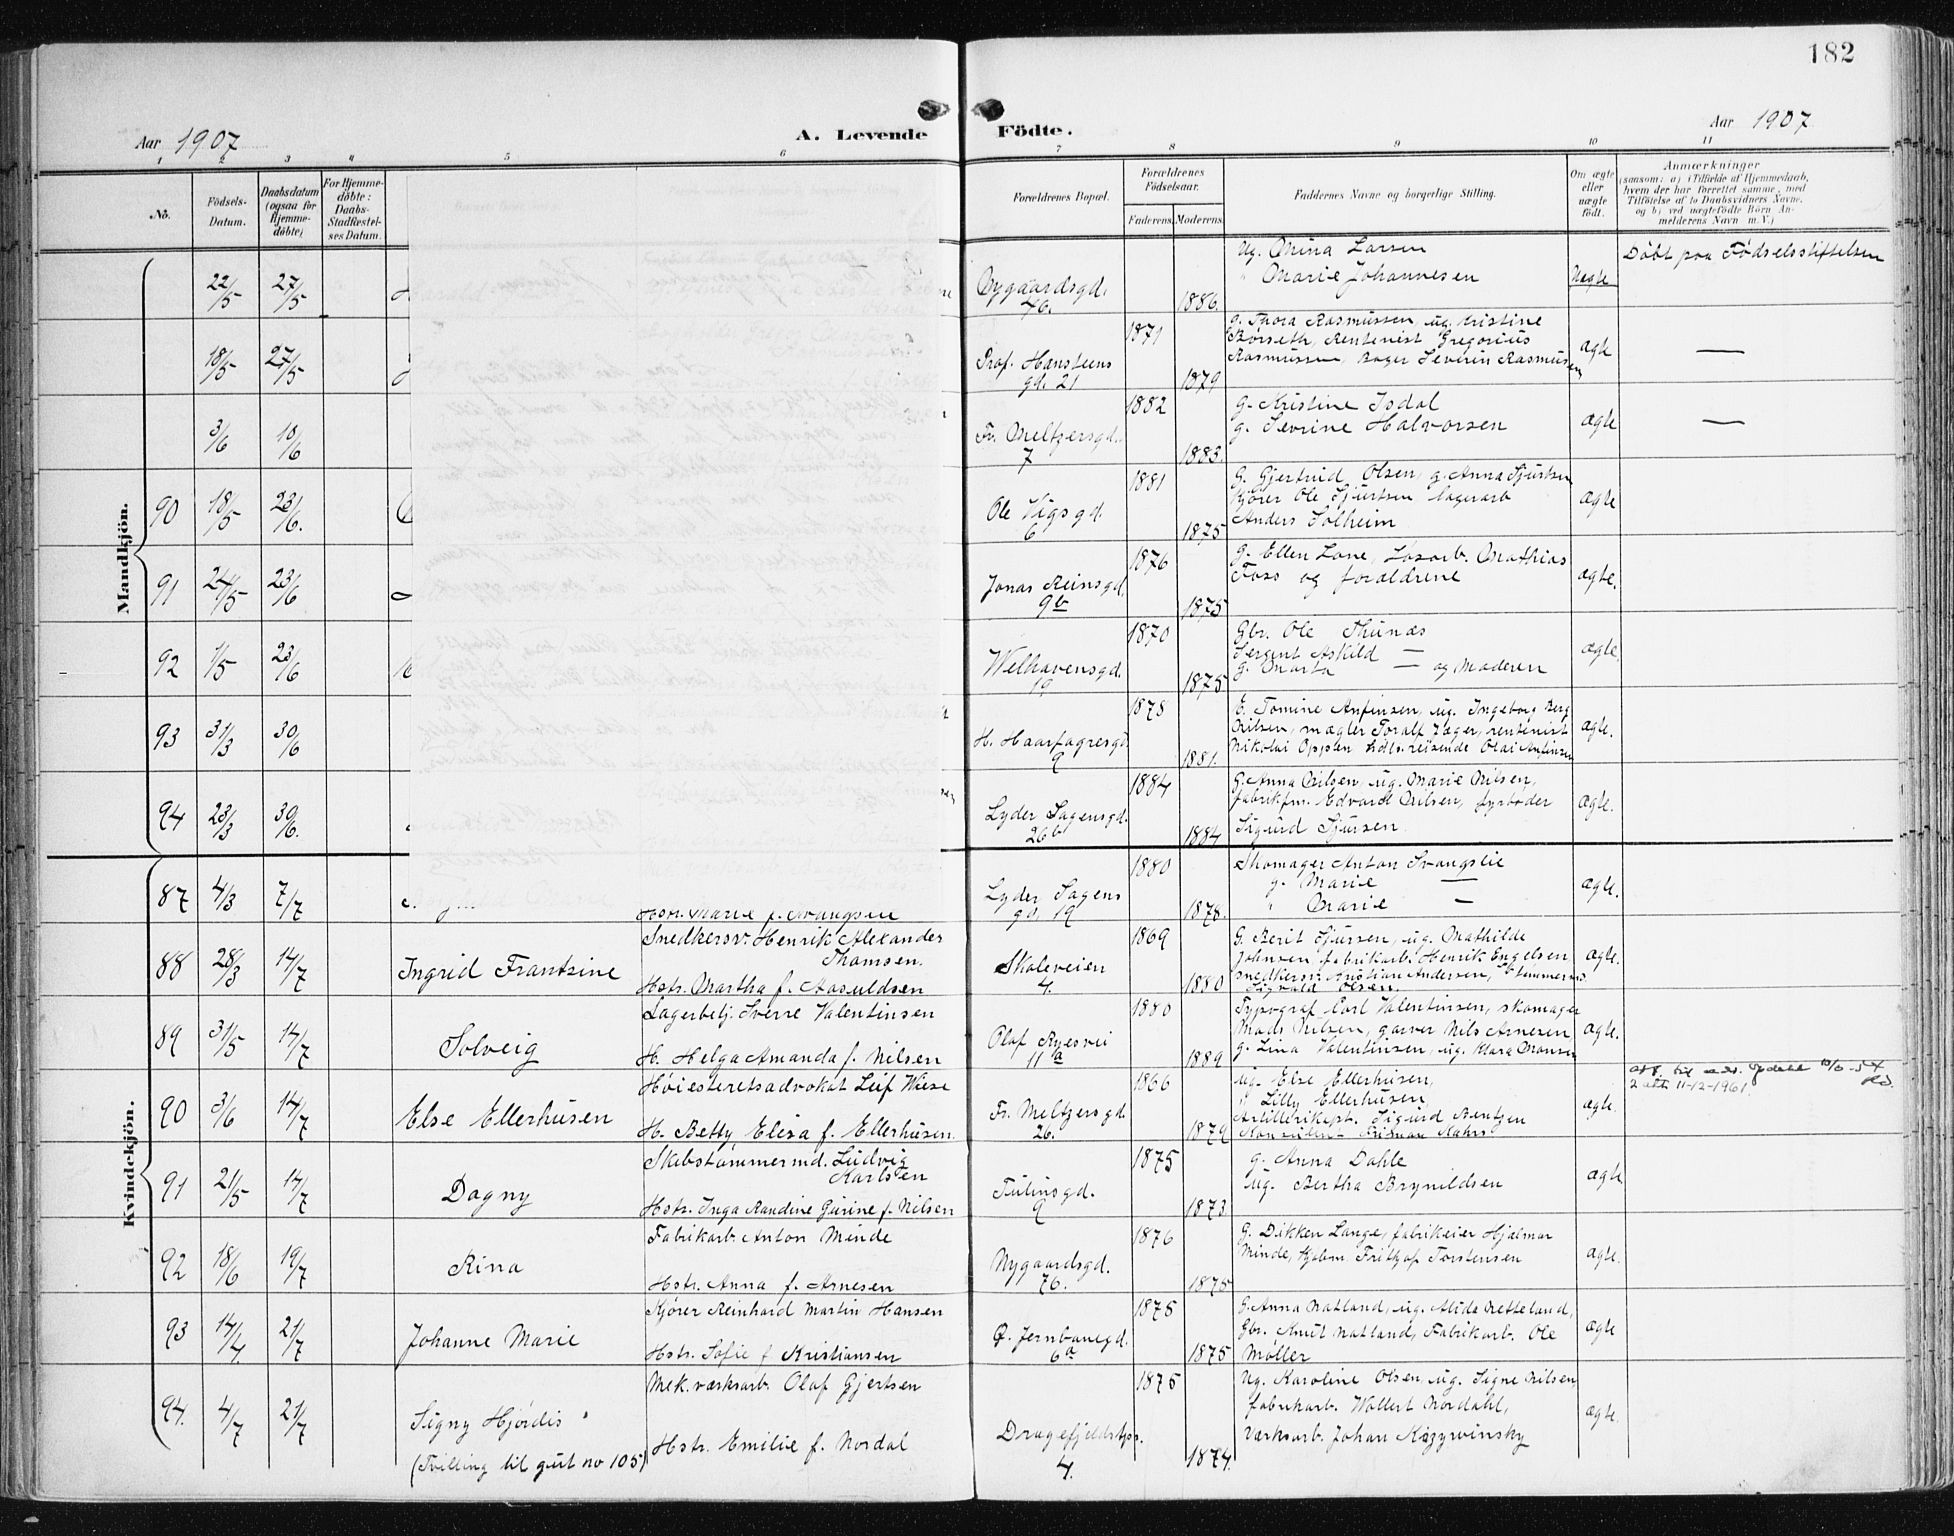 182
Aar 1907
A. Levende Födte.
Aar 1907
1 2 3 4 5 6 7 8 9 10 11
No.
Födsels-Datum.
Daabsdatum (ogsaa for Hjemme-döbte)
For Hjemme-döbte: Daabs-Stadfestel-ses Datum.
Forældrenes Bopæl.
Forældrenes Födselsaar.
Faderens. Moderens.
Faddernes Navne og borgerlige Stilling.
Om ægte eller uægte födt.
Anmærkninger
(saasom: a) i Tilfælde af Hjemmedaab, hvem der har forrettet samme, med Tilföielse af to Daabsvidners Navne, og b) ved uægtefödte Börn An-melderens Navn m. V.)
Mandkjön.
22/5 27/5
Nygaardsgd. 46.
1886.
Ug. Mina Larsen
" Marie Johannesen
Uegte
Döbt paa Fødselsstiftelsen
18/5 27/5
Prof. Hansteens gd. 21
1871 1879
g. Thora Rasmussen, ug. Kristine
Børseth, Rentenist Gregorius
Rasmussen, Bager Severin Rasmussen
ægte —
3/6 10/6
Fr. Meltzersgd. 7
1882 1883.
g. Kristine Isdal
g. Sevrine Halvorsen
ægte —
90 18/5 23/6.
Ole Vigs gd. 6
1881 1875
G. Gjertrud Olsen, g. Anna Sjurtsen
Kjører Ole Sjurtsen lagerarb
Anders Solheim
ægte
91 24/5 23/6
Jonas Reinsgd. 9b
1876 1875
g. Ellen Lone, Løsarb. Mathias
Foss og forældrene
ægte.
92 1/5 23/6
Welhavensgd. 19
1870 1875
Gbr. Ole Thunæs
Sergent Askild —
g. Marta — og Moderen
ægte.
93 31/3 30/6
H. Haarfagresgd. 9
1878 1881.
E. Tomine Anfinsen, ug. Ingeborg Berg
Nilsen, mægler Toralf Jæger, rentenist
Nikolai Opplen hdls.reisende Olai Anfinsen
ægte.
94 23/3 30/6.
Lyder Sagensgd. 26b
1884 1884
G. Anna Nilsen, ug. Marie Nilsen,
fabrikfm. Edvardt Nilsen, fyrbøder
Sigurd Sjursen.
ægte.
Kvindekjön.
87 4/3 7/7
Hstr. Marie f. Svangslie
Lyder Sagens gd. 19
1880 1878.
Skomager Anton Svangslie
g. Marie —
" Marie —
ægte.
88 28/3 14/7
Ingrid Frantzine
Snedkersv. Henrik Alexander Thomsen.
Hstr. Martha f. Aasuldsen
Skoleveien 4.
1869 1880
G. Berit Sjursen, ug. Mathilde
Johnsen, fabrikarb. Henrik Engelsen,
snedkersv. Kristian Andersen,
Sigvald Olsen.
ægte.
89 31/5 14/7
Solveig
Lagerbetj. Sverre Valentinsen
H. Helga Amanda f. Nilsen
Olaf Ryesvei 11a
1880 1889
Typograf Carl Valentinsen, skomager
Mads Nilsen, garver Nils Arnesen
g. Lina Valentinsen, ug. Klara Monsen
ægte.
90 3/6 14/7
Else Ellerhusen
Høiesteretsadvokat Leif Wiese
H. Betty Elisa f. Ellerhusen.
Fr. Meltzersgd. 26.
1866 1879
ug. Else Ellerhusen,
" Lilly Ellerhusen,
Artillerikapt. Sigurd Bentzen
ægte.
2 att. 11-12-1961.
91 21/5 14/7
Dagny
Skibstømmermd. Ludvig Karlsen
Hstr. Inga Randine Gurine f. Nilsen
Tulinsgd. 9
1875 1873
g. Anna Dahle
ug. Bertha Brynildsen
ægte
92 18/6 19/7
Rina
Fabrikarb. Anton Minde
Hstr. Anna f. Arnesen
Nygaardsgd. 76.
1876 1875
G. Dikken Lange, fabrikeier Hjalmar
Minde, Kjøbm. Frithjof Torstensen
ægte.
93 14/4. 21/7
Johanne Marie
Kjører Reinhard Martin Hansen
Hstr. Sofie f. Kristiansen
Ø. Jernbanegd. 6a
1875 1875
G. Anna Natland, ug. Alida Netteland,
Gbr. Knut Natland, Fabrikarb. Ole
Møller
ægte
94. 4/7 21/7
Signy Hjørdis
(Tvilling til gut no 105)
Mek.værksarb. Olaf Gjertsen
Hstr. Emilie f. Nordal
Dragefjeldstpr. 4.
1875 1874.
Ug. Karoline Olsen, ug. Signe Nilsen,
fabrikarb. Wollert Nordahl,
Værksarb. Johan Kazyrvinsky
ægte.